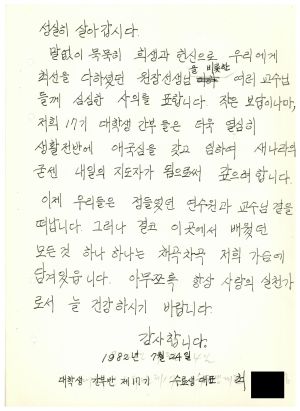 성실히 살아갑시다.
말없이 묵묵히 희생과 헌신으로 우리에게
최선을 다하셨던 원장선생님을 비롯한 여러 교수님
들께 심심한 사의를 표합니다. 작은 보답이나마,
저희 17기 대학생 간부들은 더욱 열심히
생활전반에 애국심을 갖고 임하여 새나라의
굳센 내일의 지도자가 됨으로써 갚으려 합니다.
이제 우리들은 정들었던 연수원과 교수님 곁을
떠납니다. 그러나 결코 이곳에서 배웠던
모든것 하나 하나는 차곡차곡 저희 가슴에
담겨있읍니다. 아무쪼록 항상 사랑의 실천가
로서 늘 건강하시기 바랍니다.
감사합니다.
1982년 7월 24일
대학생 간부반 제 17기 수료생 대표